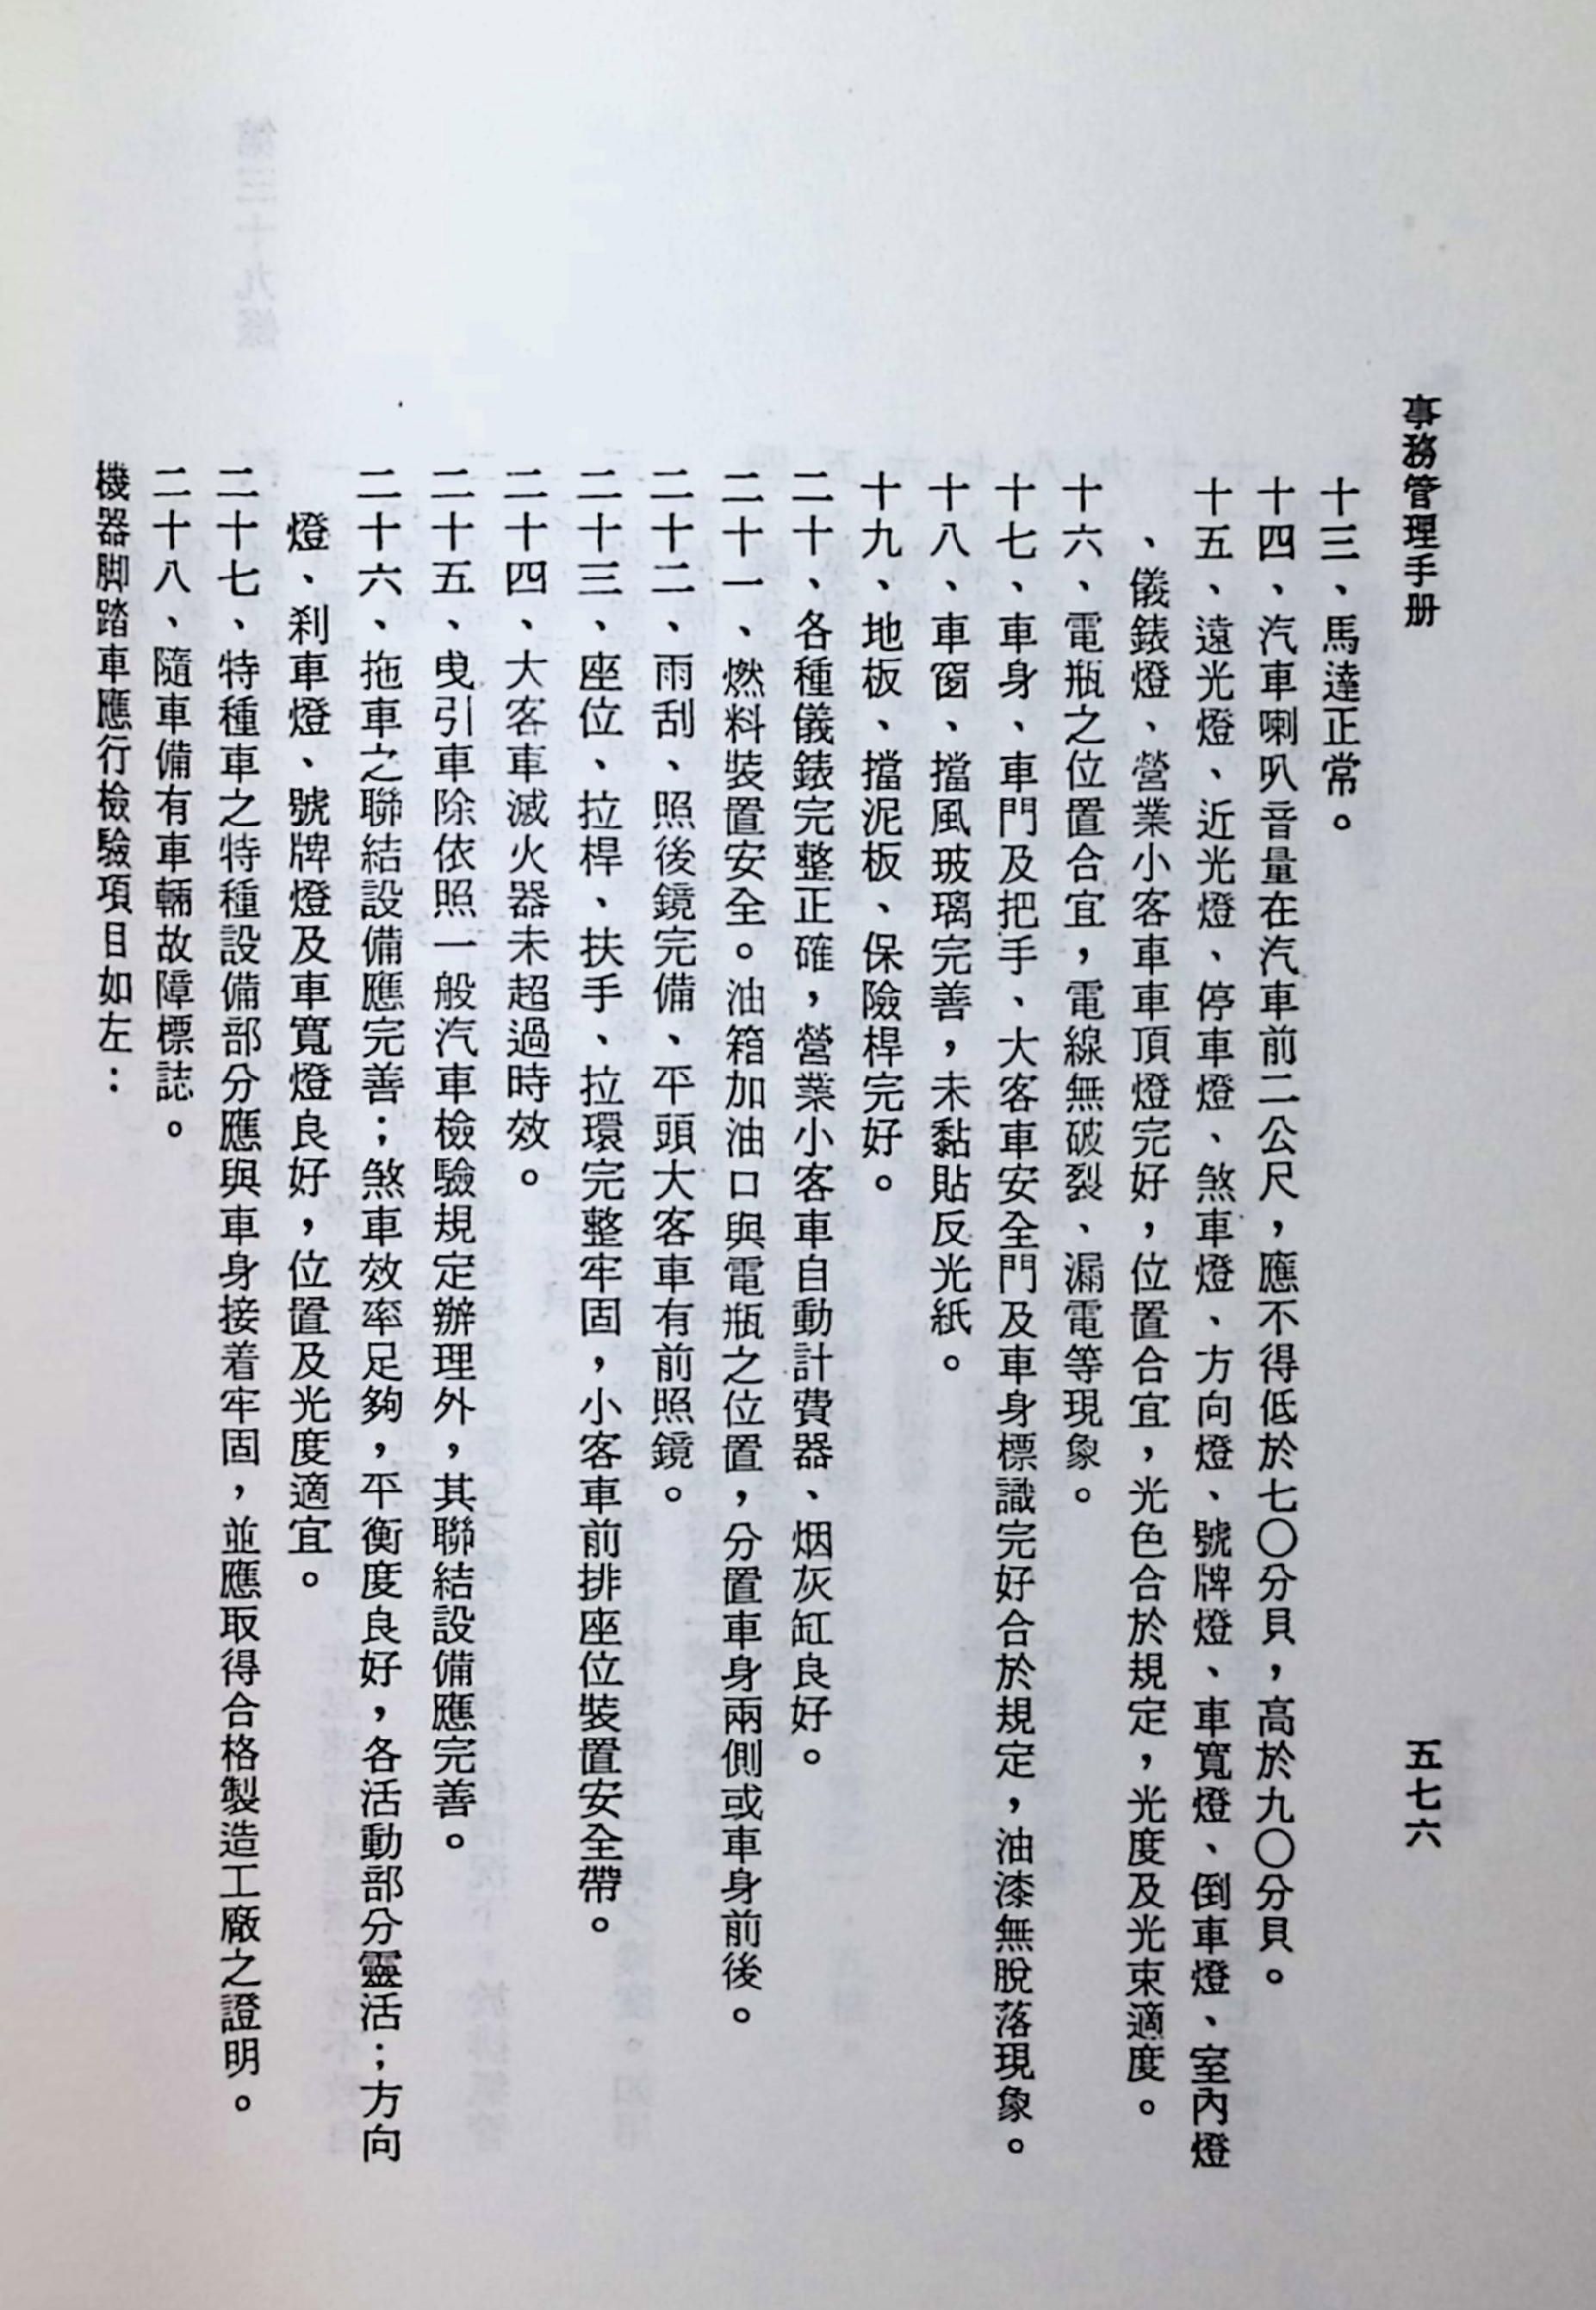 事務管理手册
五七六
十三、馬達正常。
十四、汽車喇叭音量在汽車前二公尺，應不得低於七〇分貝，高於九〇分貝。
十五、遠光燈、近光燈、停車燈、煞車燈、方向燈、號牌燈、車寬燈、倒車燈、室內燈
、儀錶燈、營業小客車車頂燈完好，位置合宜，光色合於規定，光度及光束適度。
十六、電瓶之位置合宜，電線無破裂、漏電等現象。
十七、車身、車門及把手、大客車安全門及車身標識完好合於規定，油漆無脫落現象。
十八、車窗、擋風玻璃完善，未黏貼反光紙。
十九、地板、擋泥板、保險桿完好。
二十、各種儀錶完整正確，營業小客車自動計費器、烟灰缸良好。
二十一、燃料裝置安全。油箱加油口與電瓶之位置，分置車身兩側或車身前後。
二十二、雨刮、照後鏡完備、平頭大客車有前照鏡。
二十三、座位、拉桿、扶手、拉環完整牢固，小客車前排座位裝置安全帶。
二十四、大客車滅火器未超過時效。
二十五、曳引車除依照一般汽車檢驗規定辦理外，其聯結設備應完善。
二十六、拖車之聯結設備應完善；煞車效率足夠，平衡度良好，各活動部分靈活；方向
燈、剎車燈、號牌燈及車寬燈良好，位置及光度適宜。
二十七、特種車之特種設備部分應與車身接着牢固，並應取得合格製造工廠之證明。
二十八、隨車備有車輛故障標誌。
機器脚踏車應行檢驗項目如左：